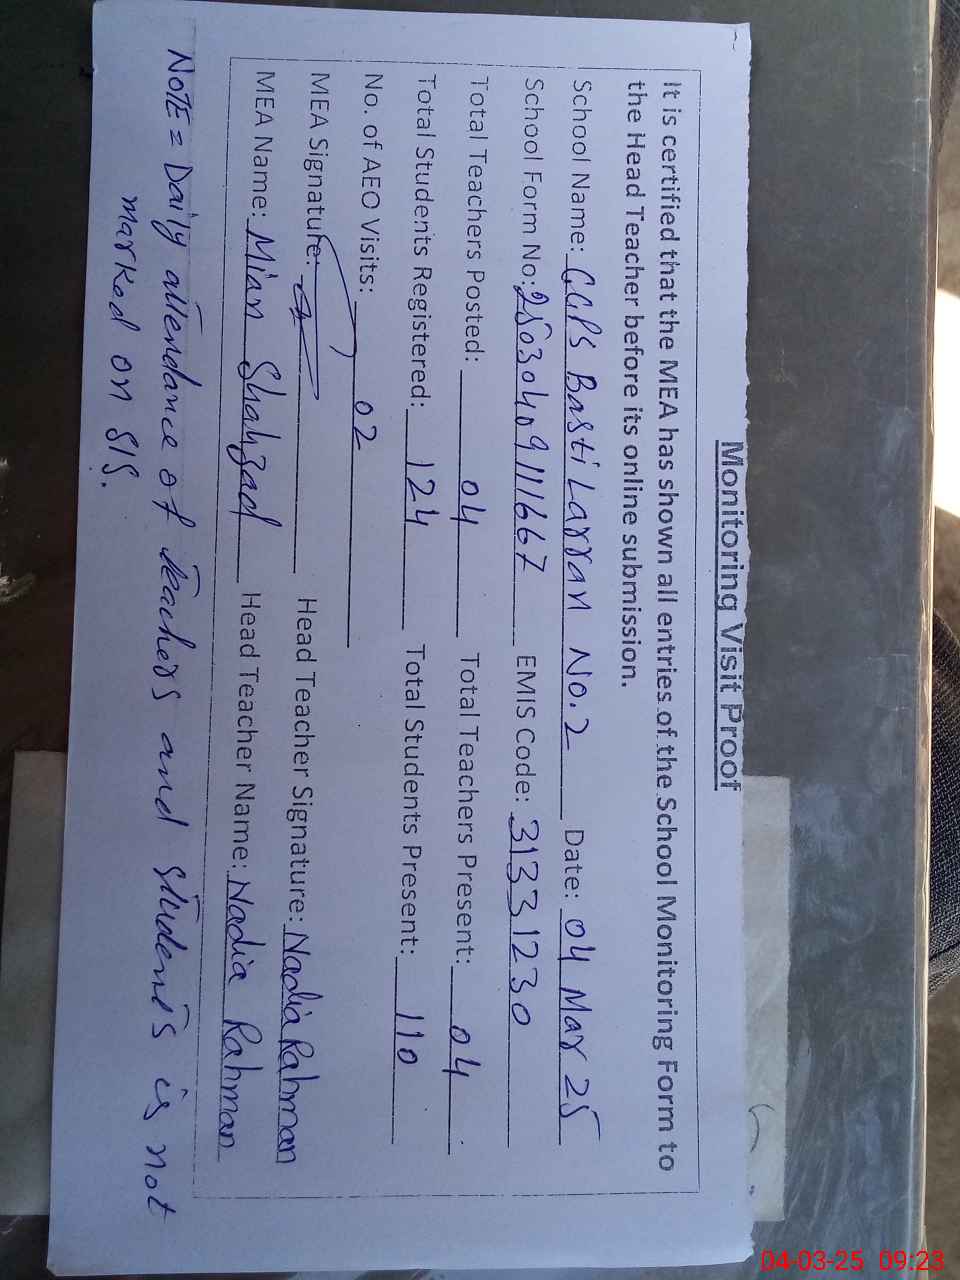 Monitoring Visit Proof
It is certified that the MEA has shown all entries of the School Monitoring Form to
the Head Teacher before its online submission.
School Name: GGPS Basti Larran No.2 Date: 04 Mar 25
School Form No: 250304091111667 EMIS Code: 31331230
Total Teachers Posted: 04 Total Teachers Present: 04
Total Students Registered: 124 Total Students Present: 110
No. of AEO Visits: 02
MEA Signature: Head Teacher Signature: Nadia Rahman
MEA Name: Mian Shahzad Head Teacher Name: Nadia Rahman
NOTE = Daily attendance of teachers and students is not
marked on SIS.
04-03-25 09:23